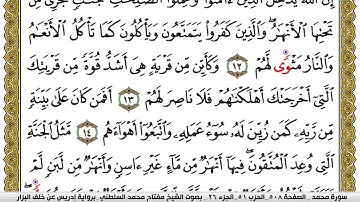 إِنَّ ٱللَّهَ يُدۡخِلُ ٱلَّذِينَ ءَامَنُواْ وَعَمِلُواْ ٱلصَّٰلِحَٰتِ جَنَّٰتٖ تَجۡرِي مِن
تَحۡتِهَا ٱلۡأَنۡهَٰرُۖ وَٱلَّذِينَ كَفَرُواْ يَتَمَتَّعُونَ وَيَأۡكُلُونَ كَمَا تَأۡكُلُ ٱلۡأَنۡعَٰمُ
وَٱلنَّارُ مَثۡوٗى لَّهُمۡ ١٢ وَكَأَيِّن مِّن قَرۡيَةٍ هِيَ أَشَدُّ قُوَّةٗ مِّن قَرۡيَتِكَ
ٱلَّتِيٓ أَخۡرَجَتۡكَ أَهۡلَكۡنَٰهُمۡ فَلَا نَاصِرَ لَهُمۡ ١٣ أَفَمَن كَانَ عَلَىٰ بَيِّنَةٖ
مِّن رَّبِّهِۦ كَمَن زُيِّنَ لَهُۥ سُوٓءُ عَمَلِهِۦ وَٱتَّبَعُوٓاْ أَهۡوَآءَهُم ١٤ مَّثَلُ ٱلۡجَنَّةِ
ٱلَّتِي وُعِدَ ٱلۡمُتَّقُونَۖ فِيهَآ أَنۡهَٰرٞ مِّن مَّآءٍ غَيۡرِ ءَاسِنٖ وَأَنۡهَٰرٞ مِّن لَّبَنٖ لَّمۡ
سورة محمد_ الصفحة ٥٠٨_ الحزب ٥١_ الجزء ٢٦_ بصوت الشيخ مفتاح محمد السلطني_ برواية إدريس عن خلف البزار